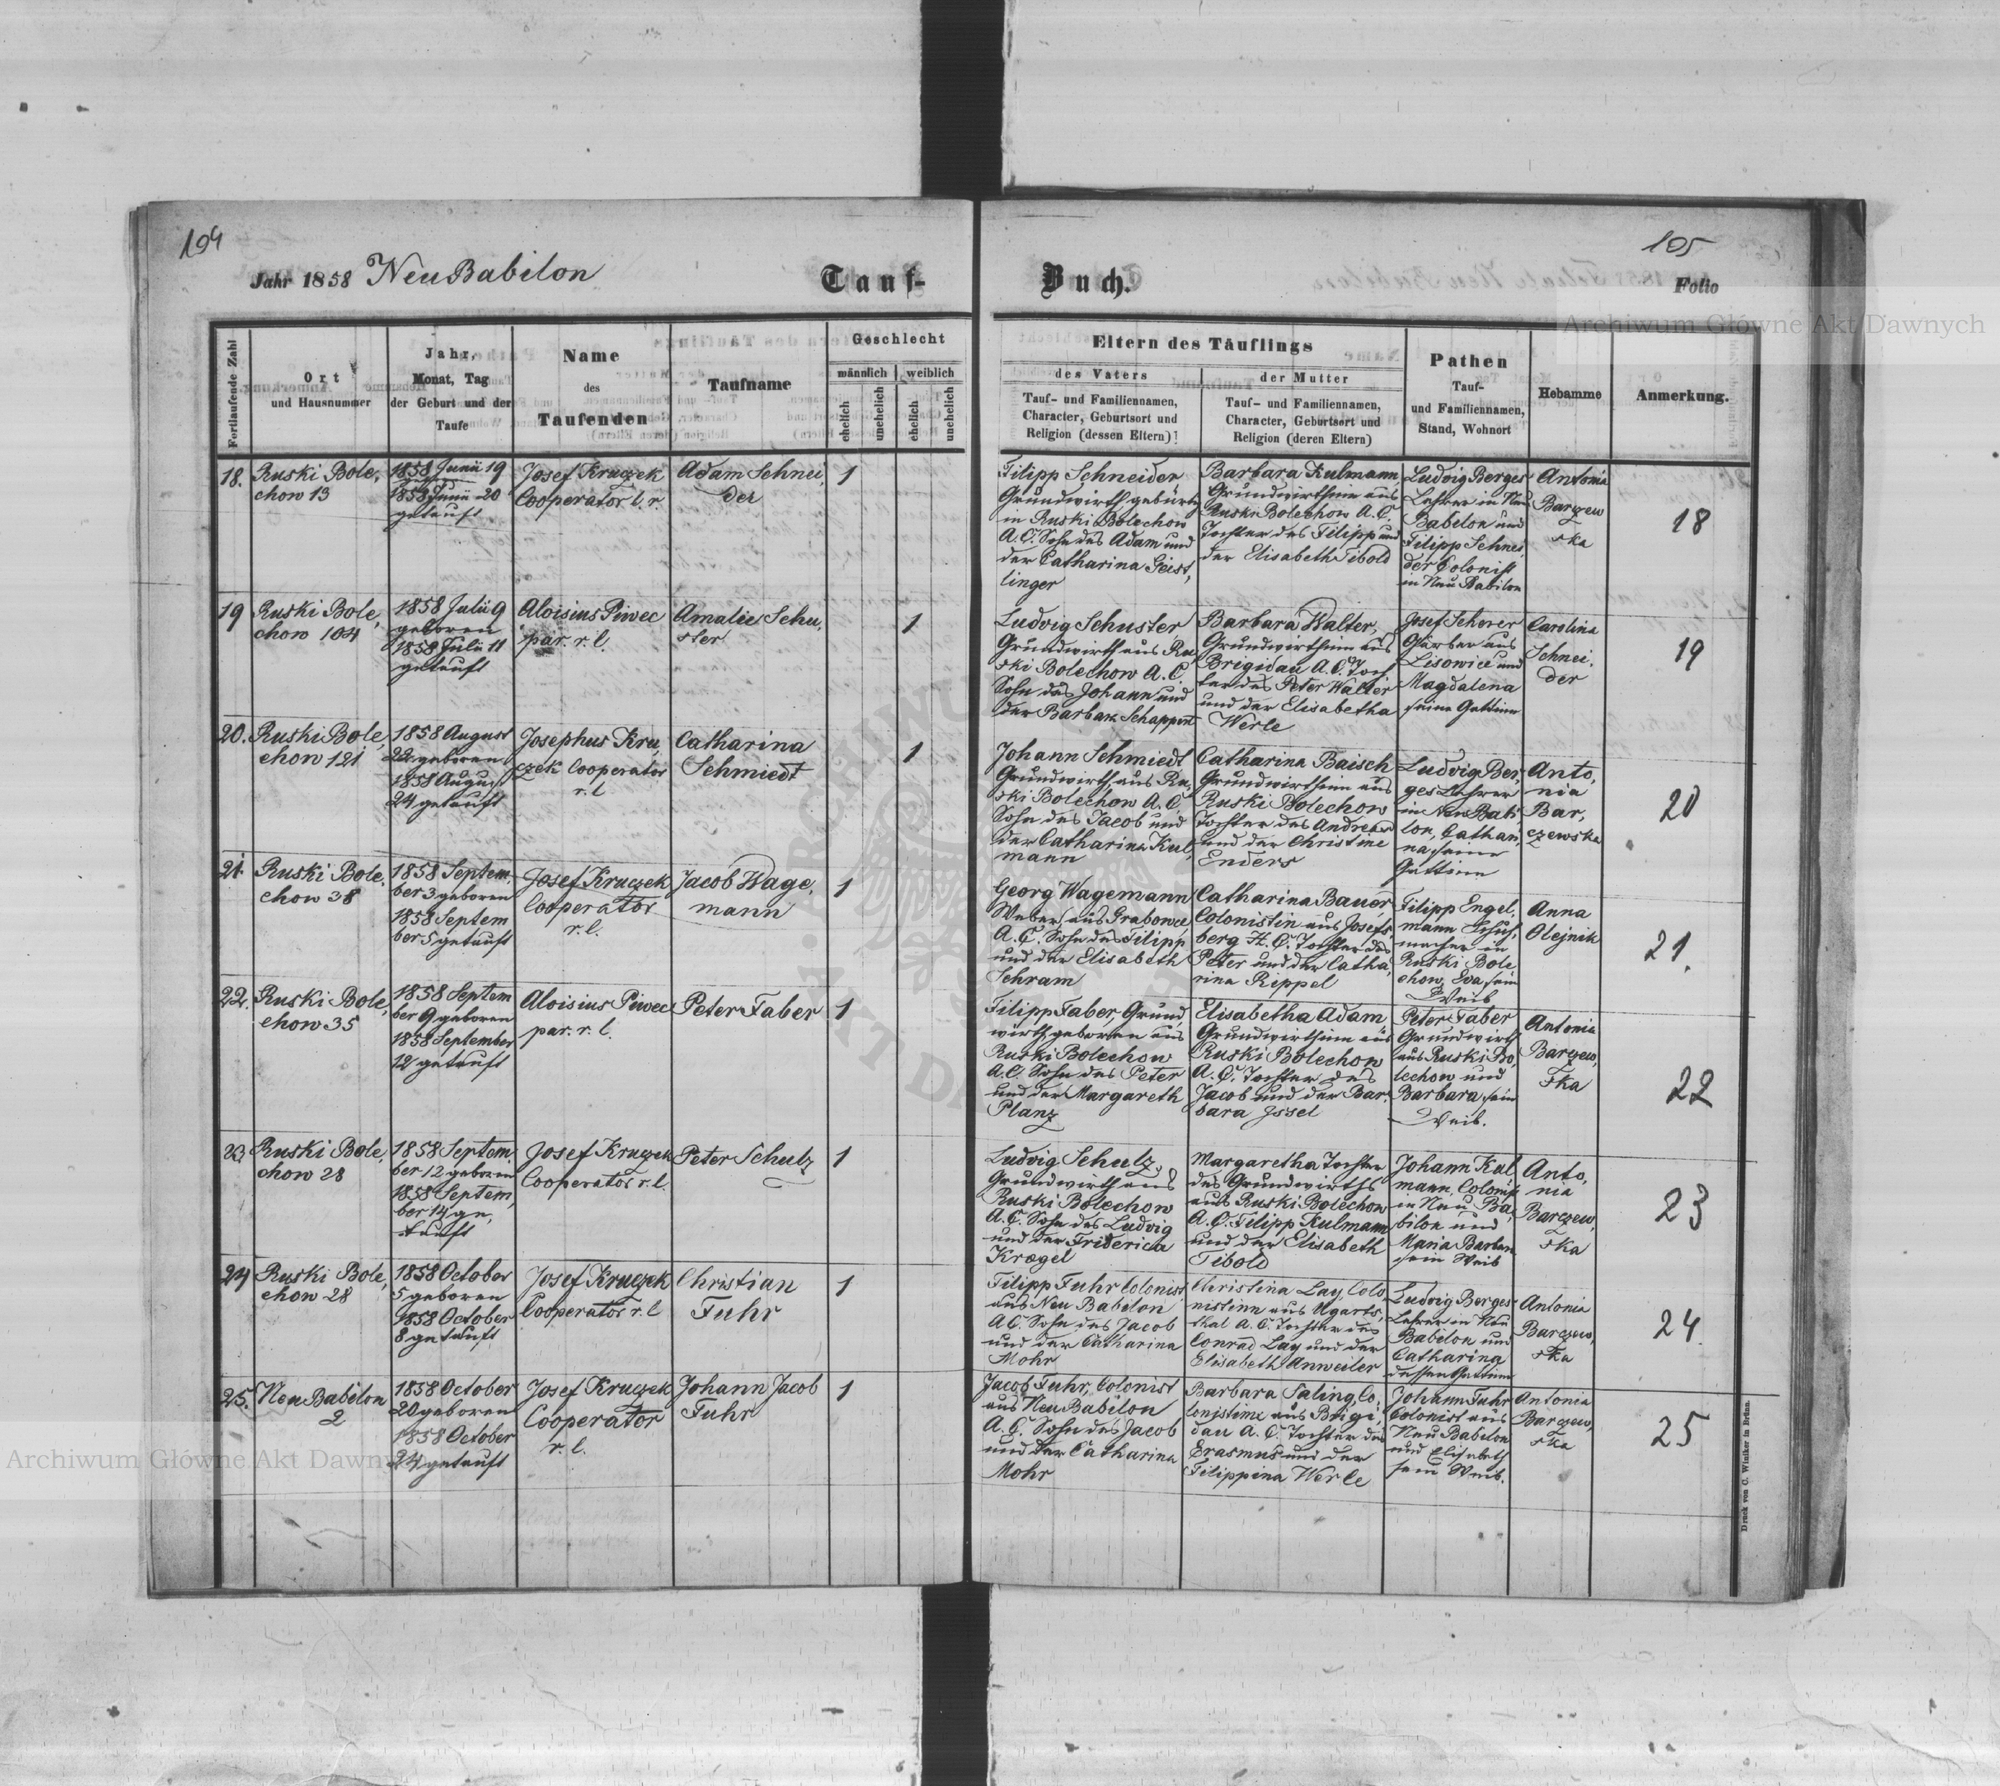 194
105
Jahr 1858 Neu Babilon
Tauf-
Buch.
Folio
Archiwum Główne Akt Dawnych
Fortlaufende Zahl
Ort
und Hausnummer
Jahr,
Monat, Tag
der Geburt und der
Taufe
Name
des
Taufenden
Taufname
Geschlecht
männlich
weiblich
ehelich
unehelich
ehelich
unehelich
Eltern des Täuflings
des Vaters
Tauf- und Familiennamen,
Character, Geburtsort und
Religion (dessen Eltern)
der Mutter
Tauf- und Familiennamen,
Character, Geburtsort und
Religion (deren Eltern)
Pathen
Tauf-
und Familiennamen,
Stand, Wohnort
Hebamme
Anmerkung.
18.
Ruski Bole,
chow 13
1858 Junii 19
1858 Junii 20
getauft
Josef Kruczek
Cooperator l. r.
Adam Schnei,
der
1
Filipp Schneider
Grundwirth gebürtig
in Ruski Bolechow
A. C. Sohn des Adam und
der Catharina Geist,
linger
Barbara Kulmann,
Grundwirthinn aus
Ruski Bolechow A. C.
Tochter des Filipp und
der Elisabeth Tibold
Ludvig Berges
Lehrer in Neu
Babilon und
Filipp Schnei,
der Colonist
in Neu Babilon
Antonia
Barczew
ska
18
19
Ruski Bole,
chow 104
1858 Julii 9
geboren
1858 Julii 11
getauft
Aloisius Piwec
par. r. l.
Amalie Schu,
ster
1
Ludvig Schuster,
Grundwirth aus Ru,
ski Bolechow A. C.
Sohn des Johann und
der Barbara Schappert
Barbara Walter,
Grundwirthinn aus
Brigidau A. C. Toch
ter des Peter Walter
und der Elisabetha
Werle
Josef Scherer
Gärber aus
Lisowice und
Magdalena
seine Gattinn
Carolina
Schnei,
der
19
20.
Ruski Bole,
chow 121
1858 August
22 geboren
1858 August
24 getauft
Josephus Kru,
czek Cooperator
r. l
Catharina
Schmiedt
1
Johann Schmiedt
Grundwirth aus Ru,
ski Bolechow A. C.
Sohn des Jacob und
der Catharina Kul,
mann
Catharina Baisch
Grundwirthinn aus
Ruski Bolechow
Tochter des Andreas
und der Christine
Enders
Ludvig Ber,
ges Lehrer
in Neu Babi
lon, Cathari,
na, seine
Gattinn
Anto,
nia
Bar,
czewska
20
21.
Ruski Bole,
chow 38
1858 Septem,
ber 3 geboren
1858 Septem
ber 5 getauft
Josef Kruczek
Cooperator
r. l.
Jacob Wage,
mann
1
Georg Wagemann
Weber aus Grabowce
A. C. Sohn des Filipp
und der Elisabeth
Schram
Catharina Bauer
Colonistin aus Josefs,
berg H. C. Tochter des
Peter und der Catha,
rina Rippel
Filipp Engel,
mann Schuh,
macher in
Ruski Bole
chow, Eva sein
Weib
Anna
Olejnik
21.
22.
Ruski Bole,
chow 35
1858 Septem
ber 9 geboren
1858 September
12 getauft
Aloisius Piwec
par. r. l.
Peter Faber
1
Filipp Faber, Grund
wirth, geboren aus
Ruski Bolechow
A. C. Sohn des Peter
und der Margareth
Planz
Elisabetha Adam
Grundwirthinn aus
Ruski Bolechow
A. C. Tochter des
Jacob und der Bar,
bara Issel
Peter Faber
Grundwirth
aus Ruski Bo,
lechow und
Barbara, sein
Weib.
Antonia
Barczew,
ska
22
23.
Ruski Bole,
chow 28
1858 Septem,
ber 12 geboren
1858 Septem,
ber 14 ge,
tauft
Josef Kruczek
Cooperator r. l.
Peter Schulz
1
Ludvig Schulz,
Grundwirth aus
Ruski Bolechow
A. C. Sohn des Ludvig
und der Friderica
Kraegel
Margaretha Tochter
des Grundwirths
aus Ruski Bolechow
A. C. Filipp Kulmann
und der Elisabeth
Tibold
Johann Kul
mann, Colonist
in Neu Ba,
bilon und
Maria Barbara
sein Weib
Anto,
nia
Barczew,
ska
23
24
Ruski Bole,
chow 28
1858 October
5 geboren
1858 October
8 getauft
Josef Kruczek
Cooperator r. l
Christian
Fuhr
1
Filipp Fuhr Colonist
aus Neu Babilon
A. C. Sohn des Jacob
und der Catharina
Mohr
Christina Lay, Colo
nistinn aus Ugarts,
thal A. C. Tochter des
Conrad Lay und der
Elisabeth Anweiler
Ludvig Berges
Lehrer in Neu
Babilon und
Catharina
dessen Gattinn
Antonia
Barczew,
ska
24.
25.
Neu Babilon
2
1858 October
20 geboren
1858 October
24 getauft
Josef Kruczek
Cooperator
r. l.
Johann Jacob
Fuhr
1
Jacob Fuhr, Colonist
aus Neu Babilon
A. C. Sohn des Jacob
und der Catharina
Mohr
Barbara Saling, Co,
lonistinn aus Brigi,
dau A. C. Tochter des
Erasmus und der
Filippina Werle
Johann Fuhr
Colonist aus
Neu Babilon
und Elisabeth
sein Weib.
Antonia
Barczew,
ska
25
Druck von C. Winiker in Brünn.
Archiwum Główne Akt Dawnych